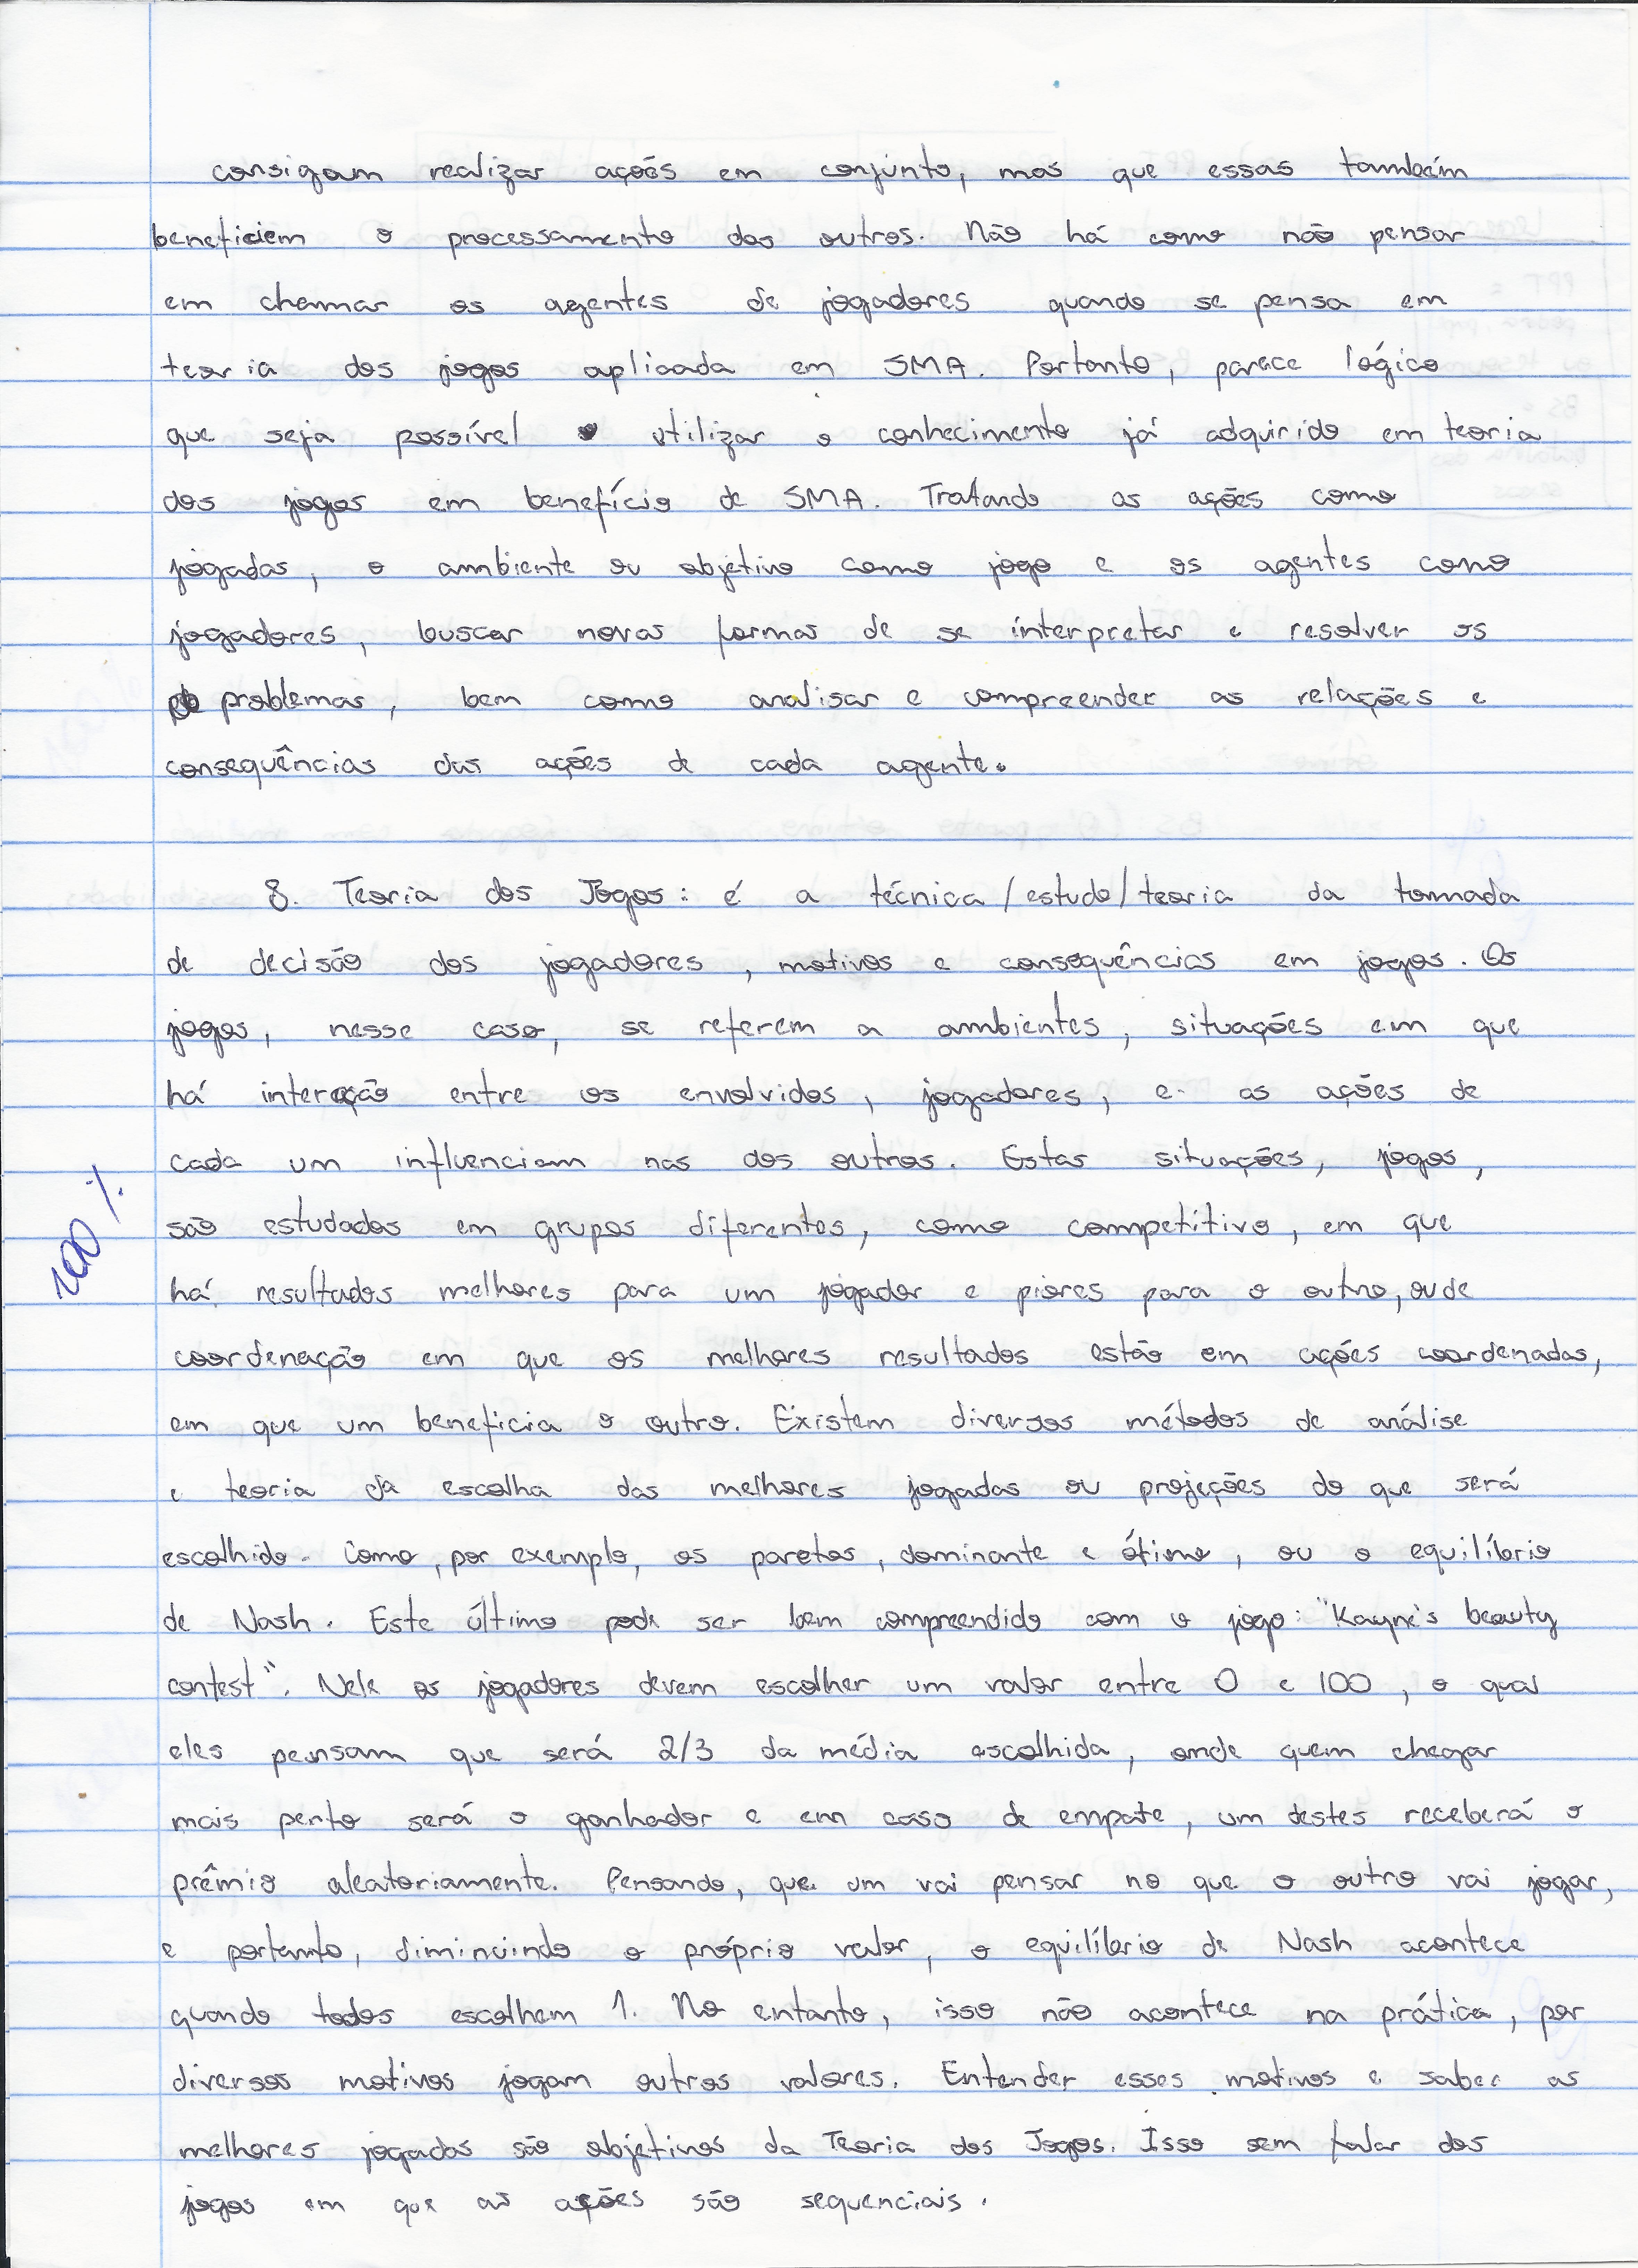 consigam realizar ações em conjunto, mas que essas também
beneficiem o processamento dos outros. Não há como não pensar
em chamar os agentes de jogadores quando se pensa em
teoria dos jogos aplicada em SMA. Portanto, parece lógico
que seja possível utilizar o conhecimento já adquirido em teoria
dos jogos em benefício de SMA. Tratando as ações como
jogadas, o ambiente ou objetivo como jogo e os agentes como
jogadores, buscar novas formas de se interpretar e resolver os
problemas, bem como analisar e compreender as relações e
consequências das ações de cada agente.
8. Teoria dos Jogos: é a técnica/estudo/teoria da tomada
de decisão dos jogadores, motivos e consequências em jogos. Os
jogos, nesse caso, se referem a ambientes, situações em que
há interação entre os envolvidos, jogadores, e as ações de
cada um influenciam nas dos outros. Estas situações, jogos,
são estudados em grupos diferentes, como competitivo, em que
há resultados melhores para um jogador e piores para o outro, ou de
coordenação em que os melhores resultados estão em ações coordenadas,
em que um beneficia o outro. Existem diversos métodos de análise
e teoria da escolha das melhores jogadas ou projeções do que será
escolhido. Como, por exemplo, os paretos, dominante e ótimo, ou o equilíbrio
de Nash. Este último pode ser bem compreendido com o jogo: "Kayne's beauty
contest". Nele os jogadores devem escolher um valor entre 0 e 100, o qual
eles pensam que será 2/3 da média escolhida, onde quem chegar
mais perto será o ganhador e em caso de empate, um destes receberá o
prêmio aleatoriamente. Pensando, que um vai pensar no que o outro vai jogar,
e portanto, diminuindo o próprio valor, o equilíbrio de Nash acontece
quando todos escolhem 1. No entanto, isso não acontece na prática, por
diversos motivos jogam outros valores. Entender esses motivos e saber as
melhores jogadas são objetivos da Teoria dos Jogos. Isso sem falar dos
jogos em que as ações são sequenciais.
100%